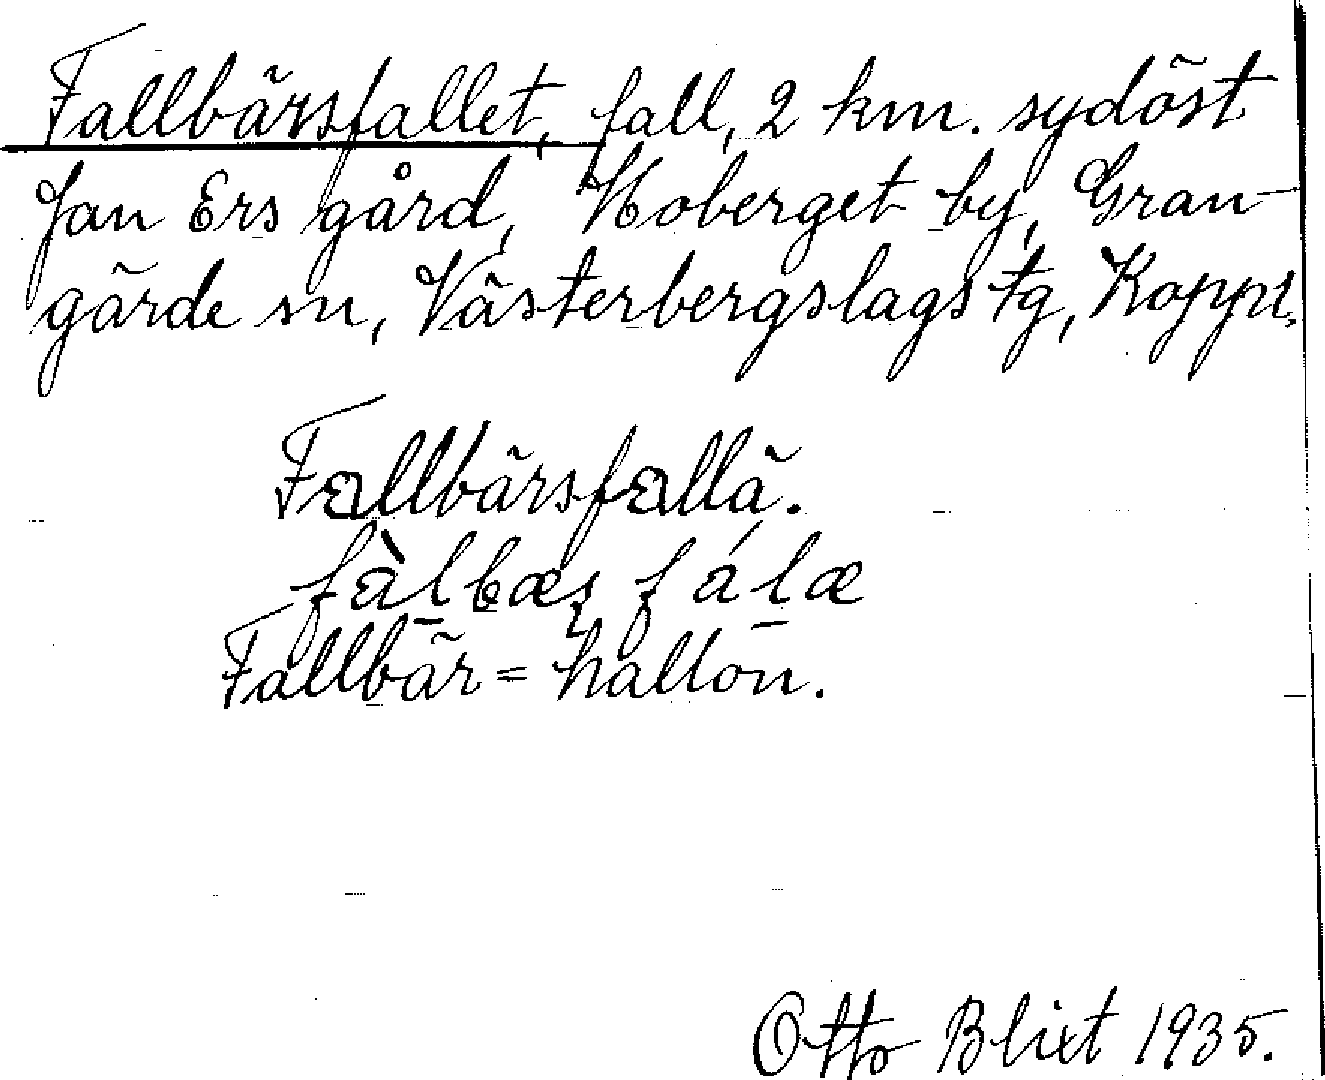 Fallbärsfallet, fall, 2 km. sydöst
Jan Ers gård, Hoberget by, Gran-
gärde sn, Västerbergslags tg, Koppbs.
Fallbärsfallä.
fàlbæs fálæ
Fallbär = hallon.
Otto Blixt 1935.